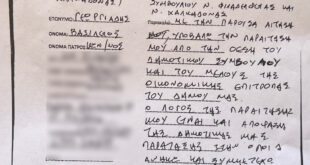 ΣΥΜΒΟΥΛΙΟΥ Ν. ΦΙΛΑΔΕΛΦΕΙΑΣ
Ν. ΧΑΛΚΗΔΟΝΑΣ
ΕΠΩΝΥΜΟ: ΓΕΩΡΓΙΑΔΗΣ
ΜΕ ΤΗΝ ΠΑΡΟΥΣΑ ΑΙΤΗΣΗ
ΟΝΟΜΑ: ΒΑΣΙΛΕΙΟΣ
ΜΟΥ ΥΠΟΒΑΛΩ ΤΗΝ ΠΑΡΑΙΤΗΣΗ
ΟΝΟΜΑ ΠΑΤΡΟΣ:
ΜΟΥ ΑΠΟ ΤΗΝ ΘΕΣΗ ΤΟΥ
ΔΗΜΟΤΙΚΟΥ ΣΥΜΒΟΥΛΟΥ
ΚΑΙ ΤΟΥ ΜΕΛΟΥΣ ΤΗΣ
ΟΙΚΟΝΟΜΙΚΗΣ ΕΠΙΤΡΟΠΗΣ
ΤΟΥ ΔΗΜΟΥ ΜΑΣ.
Ο ΛΟΓΟΣ ΤΗΣ ΠΑΡΑΙΤΗΣΗΣ
ΜΟΥ ΕΙΝΑΙ ΚΑΙ ΑΠΟΦΑΣΗ
ΤΗΣ ΔΗΜΟΤΙΚΗΣ ΜΑΣ
ΠΑΡΑΤΑΞΗΣ ΣΤΗΝ ΟΠΟΙΑ
ΑΝΗΚΩ ΚΑΙ ΣΥΜΜΕΤΕΧΩ